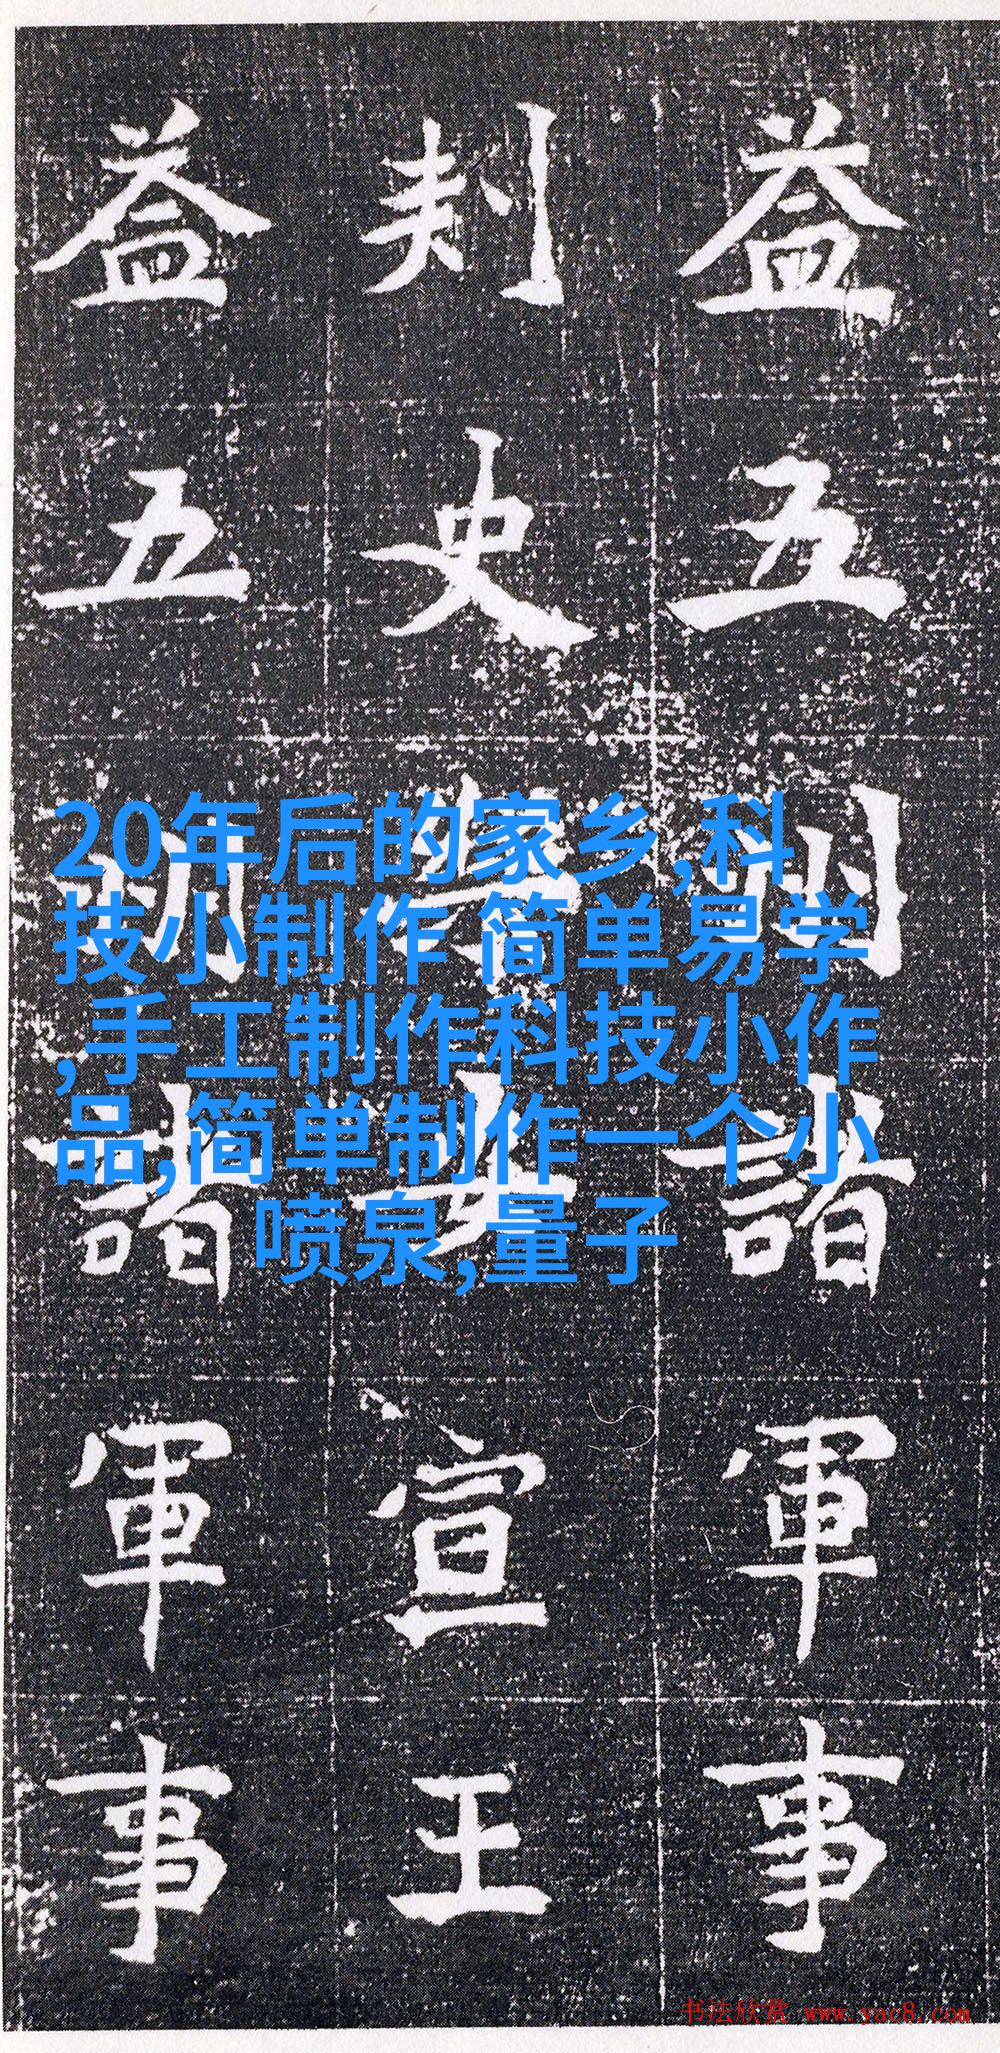 益五州諸軍事
刺史宣王
益五州諸軍事
20年后的家乡,科
技小制作 简单易学
,手工制作科技小作
品,简单制作一个小
喷泉,量子
书法欣赏 www.yac8.com